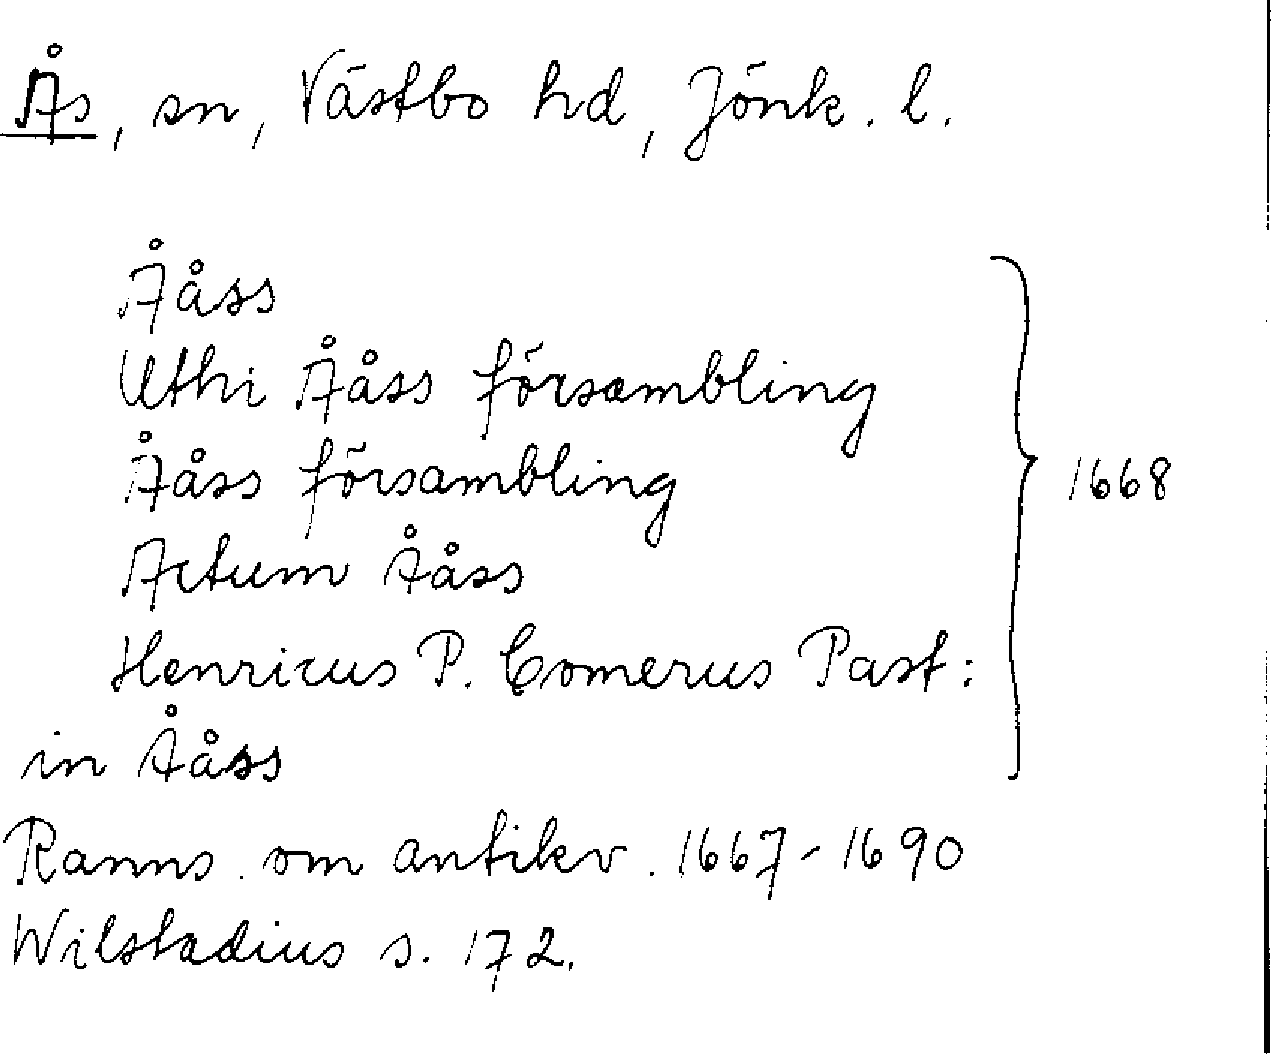 Ås, sn, Västbo hd, Jönk. l.
Ååss
Uthi Ååss försambling
Ååss försambling
1668
Actum Ååss
Henricus P. Comerus Past:
in Ååss
Ranns. om antikv. 1667-1690
Wilstadius s. 172.